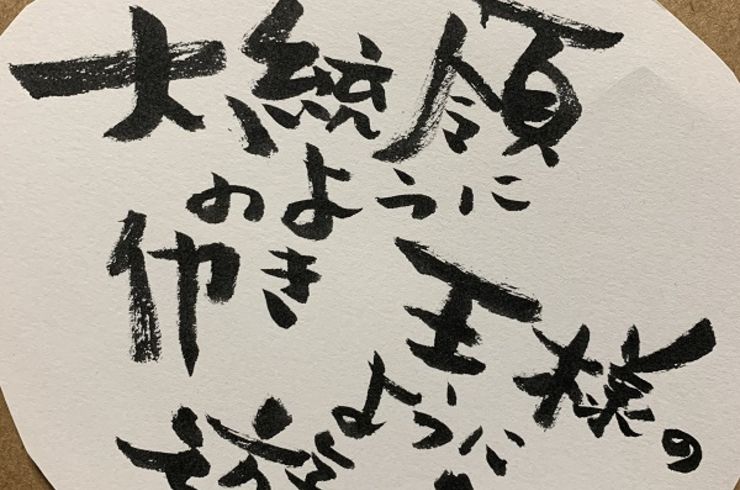 大統領
のように
働き
王様の
ように